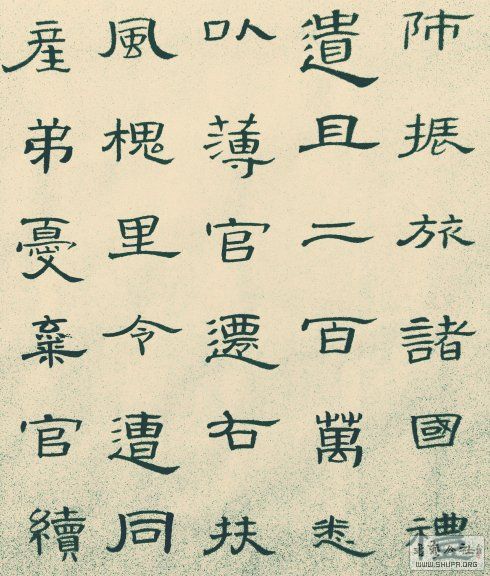 師振旅諸國禮
遺且二百萬悉
以薄官遷右扶
風槐里令遭同
産弟憂棄官續
WWW.SHUFA.ORG